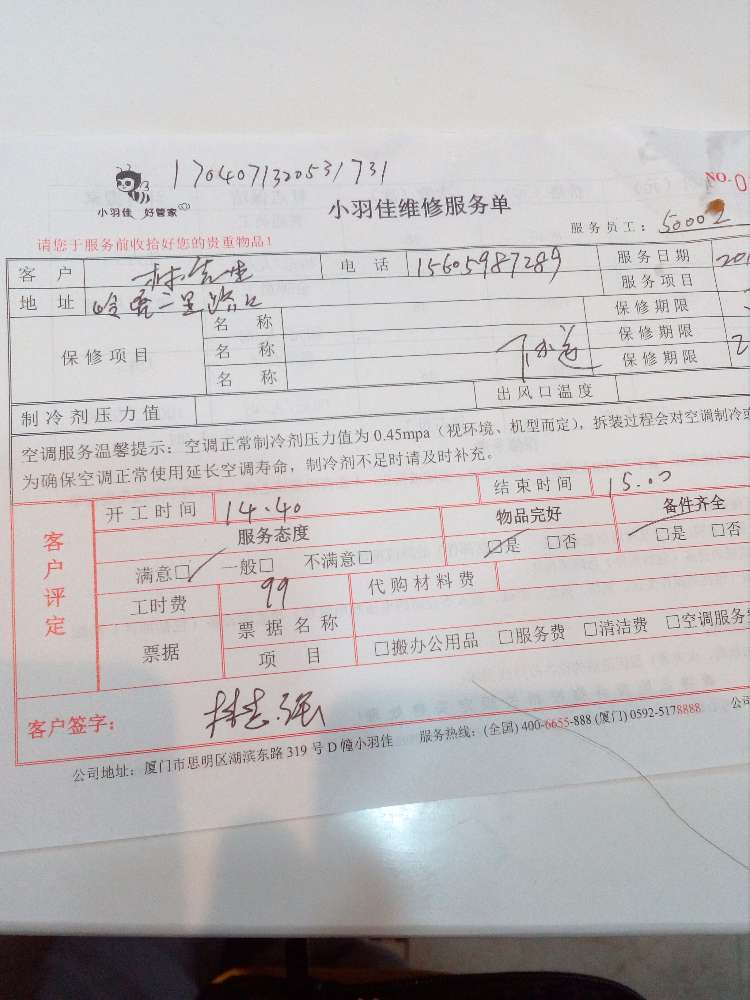 1704071320531731
NO.0
小羽佳 好管家
小羽佳维修服务单
服务员工：50002
请您于服务前收拾好您的贵重物品！
客 户 林先生 电 话 15605987289 服务日期 201
地 址 二里路口 服务项目
保修项目 名 称 保修期限
名 称 下水道 保修期限
名 称 保修期限 2
制冷剂压力值 出风口温度
空调服务温馨提示：空调正常制冷剂压力值为 0.45mpa（视环境、机型而定），拆装过程会对空调制冷或
为确保空调正常使用延长空调寿命，制冷剂不足时请及时补充。
客户评定
开工时间 14.40 结束时间 15.00
服务态度 物品完好 备件齐全
满意□ 一般□ 不满意□ □是 □否 □是 □否
工时费 99 代购材料费
票据 票据名称 □搬办公用品 □服务费 □清洁费 □空调服务费
项 目
客户签字： 林志强
公司地址：厦门市思明区湖滨东路 319 号 D 幢小羽佳 服务热线：(全国) 400-6655-888 (厦门) 0592-5178888 公司